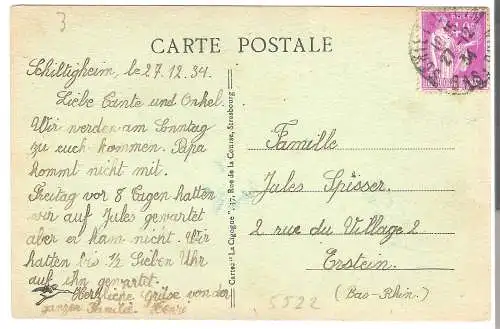 3
CARTE POSTALE
Schiltigheim, le 27.12.34.
Liebe Tante und Onkel.
Wir werden am Sonntag
zu euch kommen. Papa
kommt nicht mit.
Freitag vor 8 Tagen hatten
wir auf Jules gewartet
aber er kam nicht. Wir
hatten bis ½ Sieben Uhr
auf ihn gewartet.
Herzliche Grüße von der
ganzen Familie Henri
Cartes "La Cigogne", 37, Rue de la Course, Strasbourg
Famille
Jules Spisser.
2 rue du Village 2
Erstein.
(Bas-Rhin.)
5522